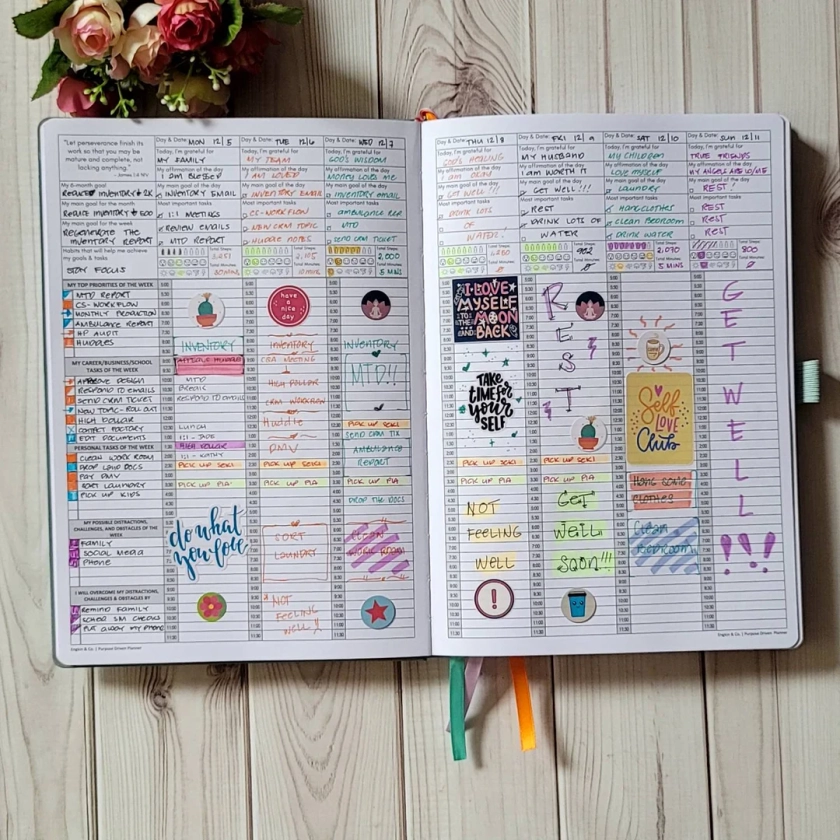 "Let perseverance finish its
work so that you may be
mature and complete, not
lacking anything."
- James 1:4 NIV
My 6-month goal
REDUCE INVENTORY
My main goal for the month
REDUCE INVENTORY
My main goal for the week
REGENERATE THE
INVENTORY REPORT
Habits that will help me achieve
my goals & tasks
STAY FOCUS
MY TOP PRIORITIES OF THE WEEK
MTD REPORT
CS-WORKFLOW
MONTHLY PRODUCTION
AMBULANCE REPORT
HP AUDIT
HUDDLES
MY CAREER/BUSINESS/SCHOOL
TASKS OF THE WEEK
APPROVE DESIGN
RESPOND TO EMAILS
SEND CRM TICKET
NEW TOPIC-ROLL OUT
HIGH DOLLAR
CONTACT FACTORY
EDIT DOCUMENTS
PERSONAL TASKS OF THE WEEK
CLEAN WORK ROOM
DROP LOAD DOCS
PAY DMV
SORT LAUNDRY
PICK UP KIDS
MY POSSIBLE DISTRACTIONS,
CHALLENGES, AND OBSTACLES OF THE
WEEK
FAMILY
SOCIAL MEDIA
PHONE
I WILL OVERCOME MY DISTRACTIONS,
CHALLENGES & OBSTACLES BY
REMIND FAMILY
SCHED SM CHECKS
PUT AWAY MY PHONE
Day & Date: MON 12/5
Today, I'm grateful for
MY FAMILY
My affirmation of the day
I AM BLESSED
My main goal of the day
INVENTORY EMAIL
Most important tasks
1:1 MEETINGS
REVIEW EMAILS
MTD REPORT
Total Steps
Total Minutes
INVENTORY
MTD
EMAIL
RESPOND TO EMAILS
LUNCH
1:1 - JADE
HIGH DOLLAR
1:1 - KATHY
PICK UP SEKI
PICK UP PIA
do what
you love
Day & Date: TUE 12/6
Today, I'm grateful for
MY TEAM
My affirmation of the day
I AM LOVED
My main goal of the day
INVENTORY EMAIL
Most important tasks
CS-WORKFLOW
NEW CRM TOPIC
HUDDLE NOTES
Total Steps
2,105
Total Minutes
have
a
nice
day
INVENTORY
CBA MEETING
HIGH DOLLAR
CRM WORKFLOW
Huddle
DMV
PICK UP SEKI
PICK UP PIA
SORT
LAUNDRY
*NOT
FEELING
WELL!!
Day & Date: WED 12/7
Today, I'm grateful for
GOD'S WISDOM
My affirmation of the day
MONEY LOVES ME
My main goal of the day
INVENTORY EMAIL
Most important tasks
AMBULANCE REP
MTD
SEND CRM TICKET
Total Steps
2,000
Total Minutes
5 MINS
INVENTORY
MTD!!
PICK UP SEKI
SEND CRM TIX
AMBULANCE
REPORT
PICK UP PIA
DROP THE DOCS
CLEAN
WORK ROOM
Engxin & Co. | Purpose Driven Planner
Day & Date: THU 12/8
Today, I'm grateful for
GOD'S HEALING
My affirmation of the day
I am OKAY
My main goal of the day
GET WELL!!!
Most important tasks
DRINK LOTS
OF
WATER!
Total Steps
Total Minutes
I LOVE
MYSELF
TO THE MOON
AND BACK
TAKE
TIME FOR
YOUR
SELF
PICK UP SEKI
PICK UP PIA
NOT
FEELING
WELL
!
Day & Date: FRI 12/9
Today, I'm grateful for
MY HUSBAND
My affirmation of the day
I AM WORTH IT
My main goal of the day
GET WELL!!!
Most important tasks
REST
DRINK LOTS OF
WATER
Total Steps
902
Total Minutes
R
E
S
T
PICK UP SEKI
PICK UP PIA
GET
WELL
SOON!!!
Day & Date: SAT 12/10
Today, I'm grateful for
MY CHILDREN
My affirmation of the day
LOVE MYSELF
My main goal of the day
LAUNDRY
Most important tasks
HANG CLOTHES
CLEAN BEDROOM
DRINK WATER
Total Steps
2,070
Total Minutes
5 MINS
Self
LOVE
Club
HANG SOME
CLOTHES
CLEAN
BEDROOM
Day & Date: SUN 12/11
Today, I'm grateful for
TRUE FRIENDS
My affirmation of the day
MY ANGELS
My main goal of the day
REST!
Most important tasks
REST
REST
REST
Total Steps
800
Total Minutes
G
E
T
W
E
L
L
!!!
Engxin & Co. | Purpose Driven Planner